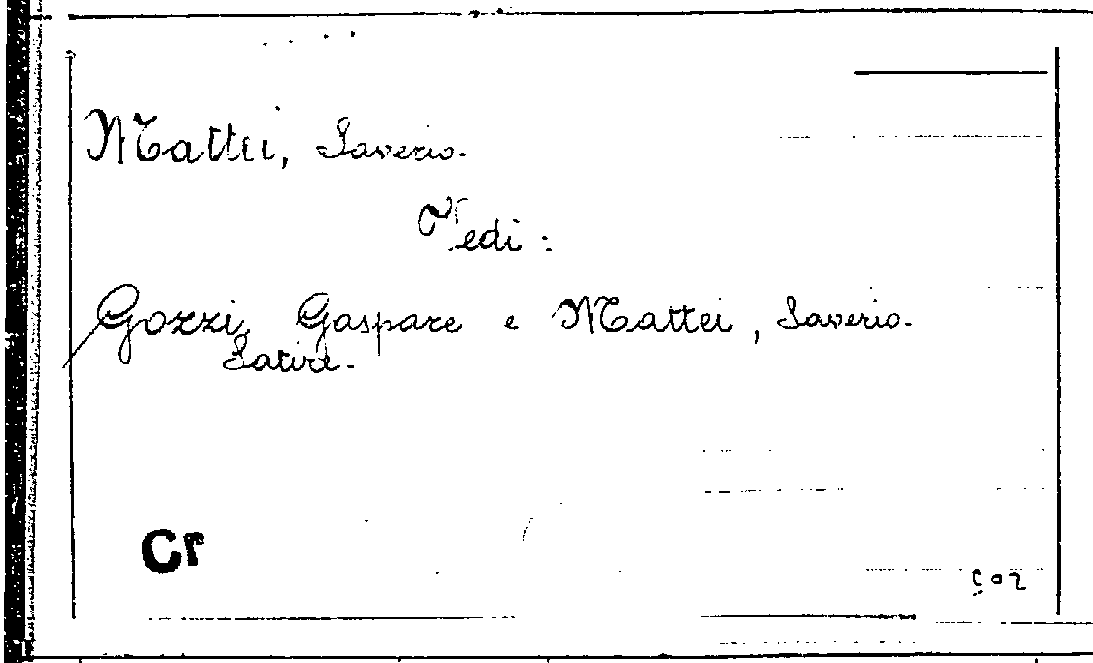 Mattei, Saverio.
Vedi:
Gozzi, Gaspare e Mattei, Saverio.
Satire.
Cr